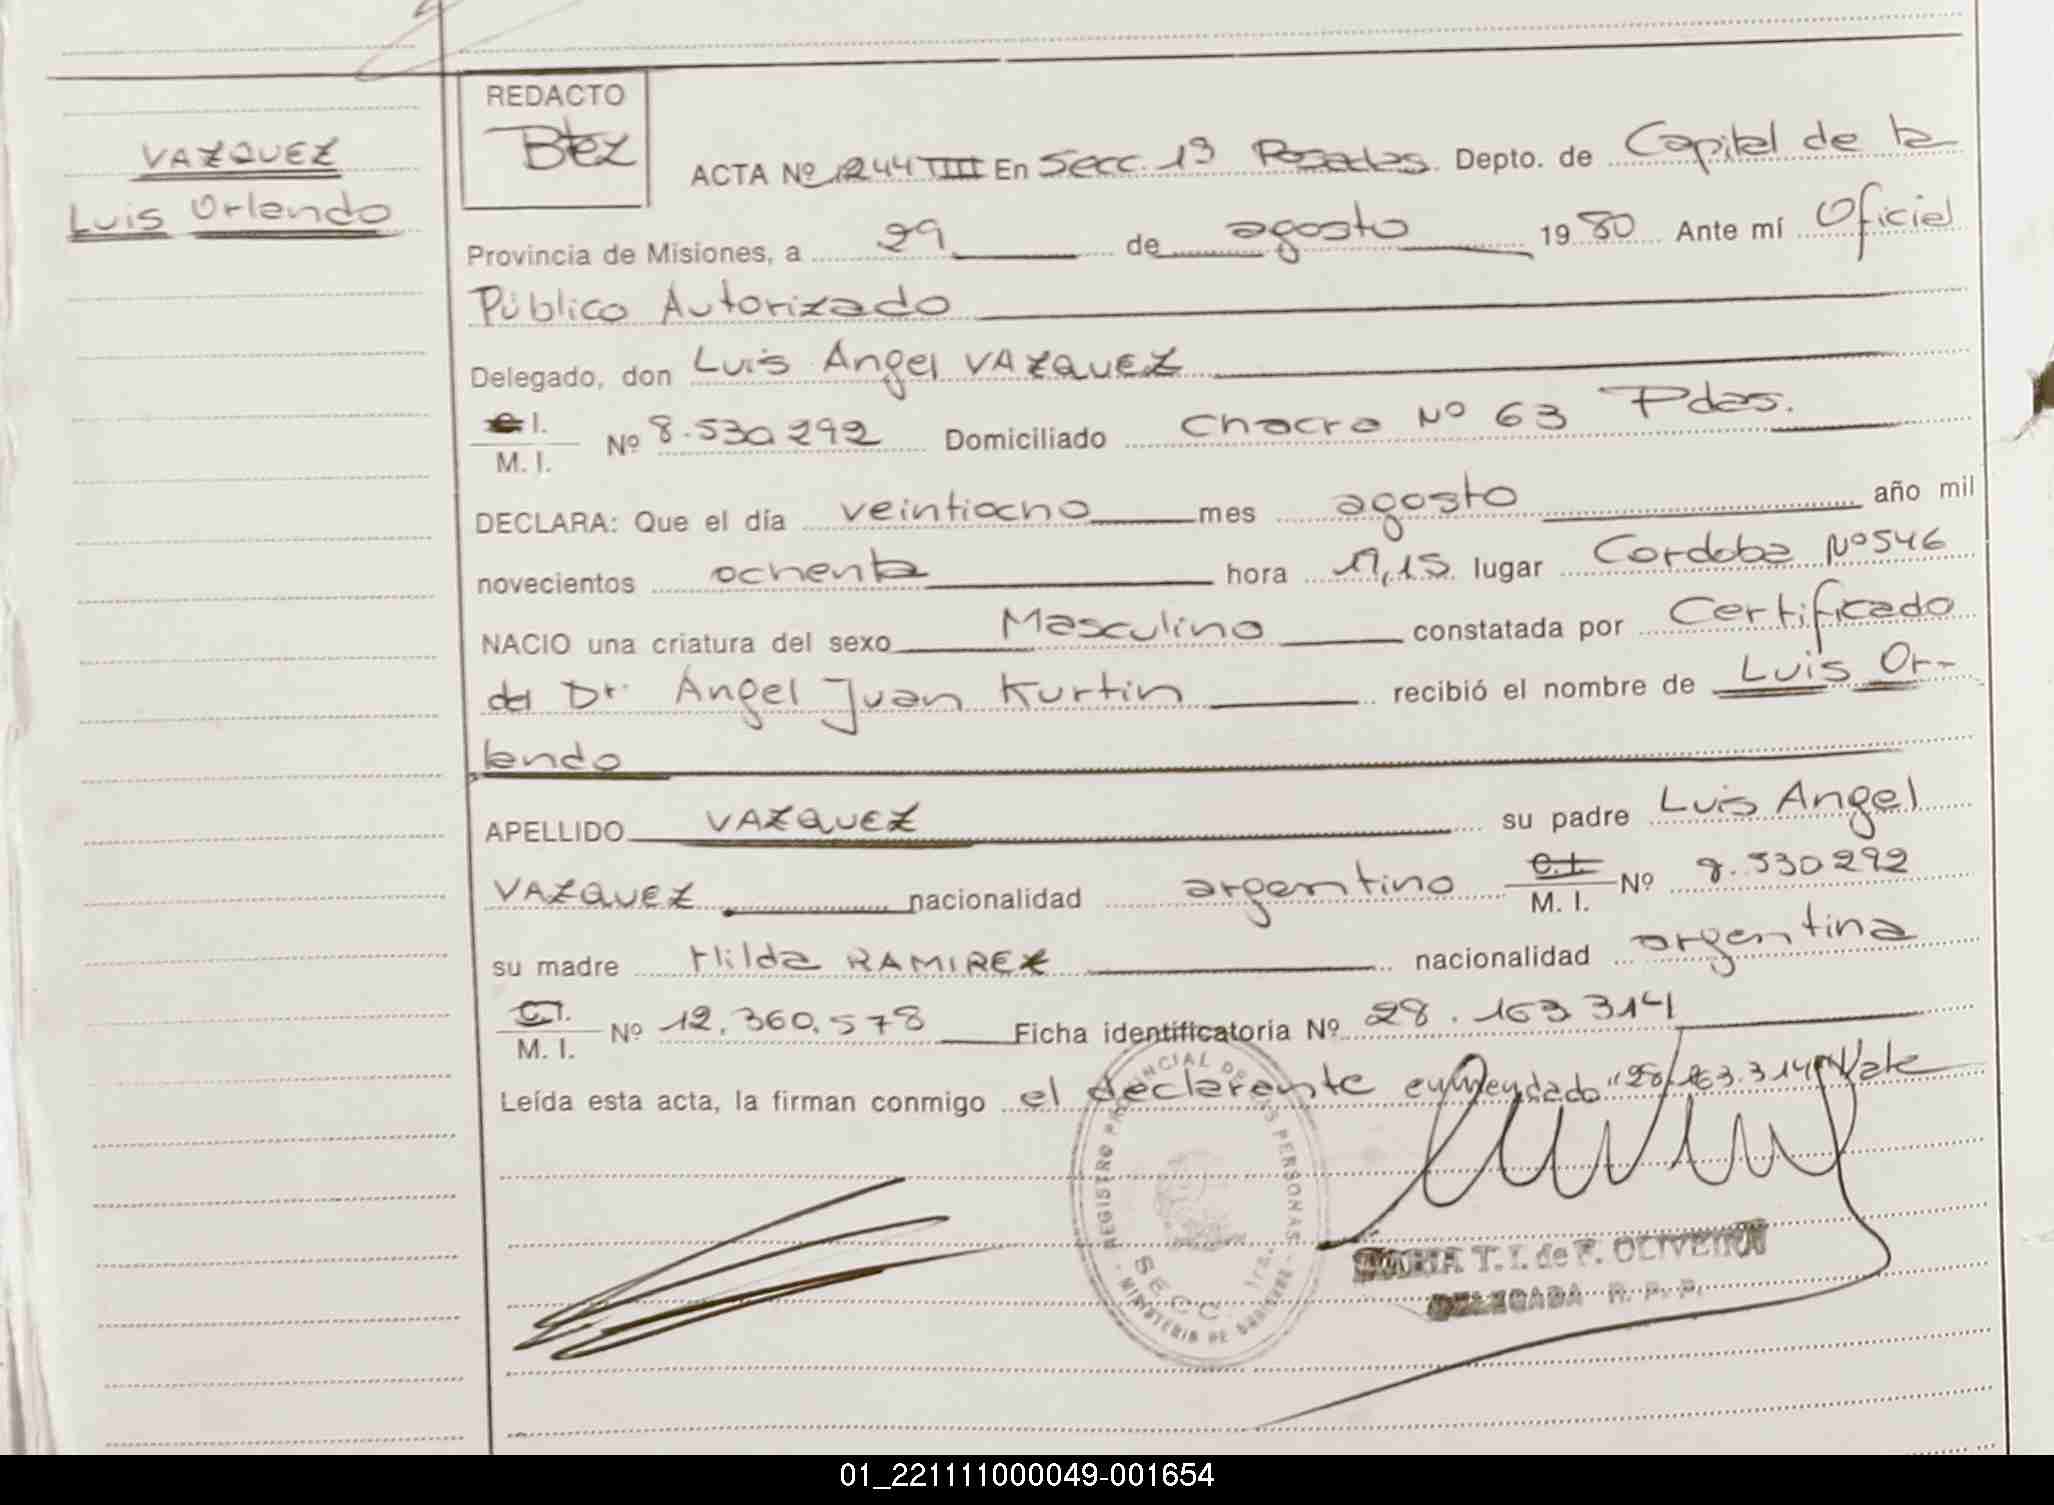 REDACTO
Btez
VAZQUEZ
Luis Orlando
ACTA Nº 1244 TIII En Secc. 1ª Posadas. Depto. de Capital de la
Provincia de Misiones, a 29 de agosto 1980 Ante mí Oficial
Público Autorizado
Delegado, don Luis Angel VAZQUEZ
C.I.
M. I. Nº 8.530292 Domiciliado Chacra Nº 63 Pdas.
DECLARA: Que el día veintiocho mes agosto año mil
novecientos ochenta hora 17,15 lugar Cordoba Nº 546
NACIO una criatura del sexo Masculino constatada por Certificado
del Dr. Angel Juan Kurtin recibió el nombre de Luis Or-
lando
APELLIDO VAZQUEZ su padre Luis Angel
VAZQUEZ nacionalidad argentino C.I.
M. I. Nº 8.530292
su madre Hilda RAMIREZ nacionalidad argentina
C.I.
M. I. Nº 12.360.578 Ficha identificatoria Nº 28.163314
Leída esta acta, la firman conmigo el declarante enmendado "28.163.314" Vale
REGISTRO PROVINCIAL DE LAS PERSONAS
SECC. 1ra.
MINISTERIO DE GOBIERNO
MARIA T. I. de F. OLIVEIRA
DELEGADA R. P. P.
01_221111000049-001654